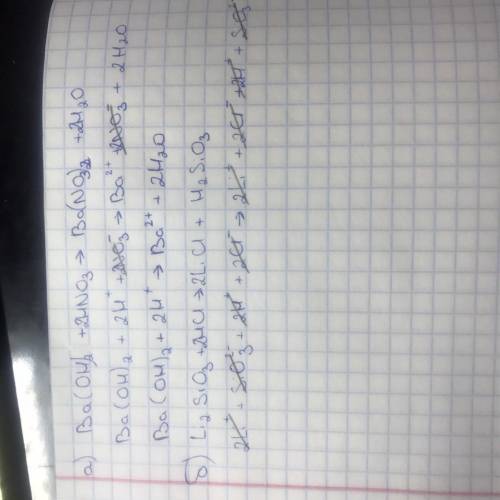 а) Ba(OH)₂ + 2HNO₃ → Ba(NO₃)₂ + 2H₂O
Ba(OH)₂ + 2H⁺ + 2NO₃⁻ → Ba²⁺ + 2NO₃⁻ + 2H₂O
Ba(OH)₂ + 2H⁺ → Ba²⁺ + 2H₂O
б) Li₂SiO₃ + 2HCl → 2LiCl + H₂SiO₃
2Li⁺ + SiO₃²⁻ + 2H⁺ + 2Cl⁻ → 2Li⁺ + 2Cl⁻ + 2H⁺ + SiO₃²⁻